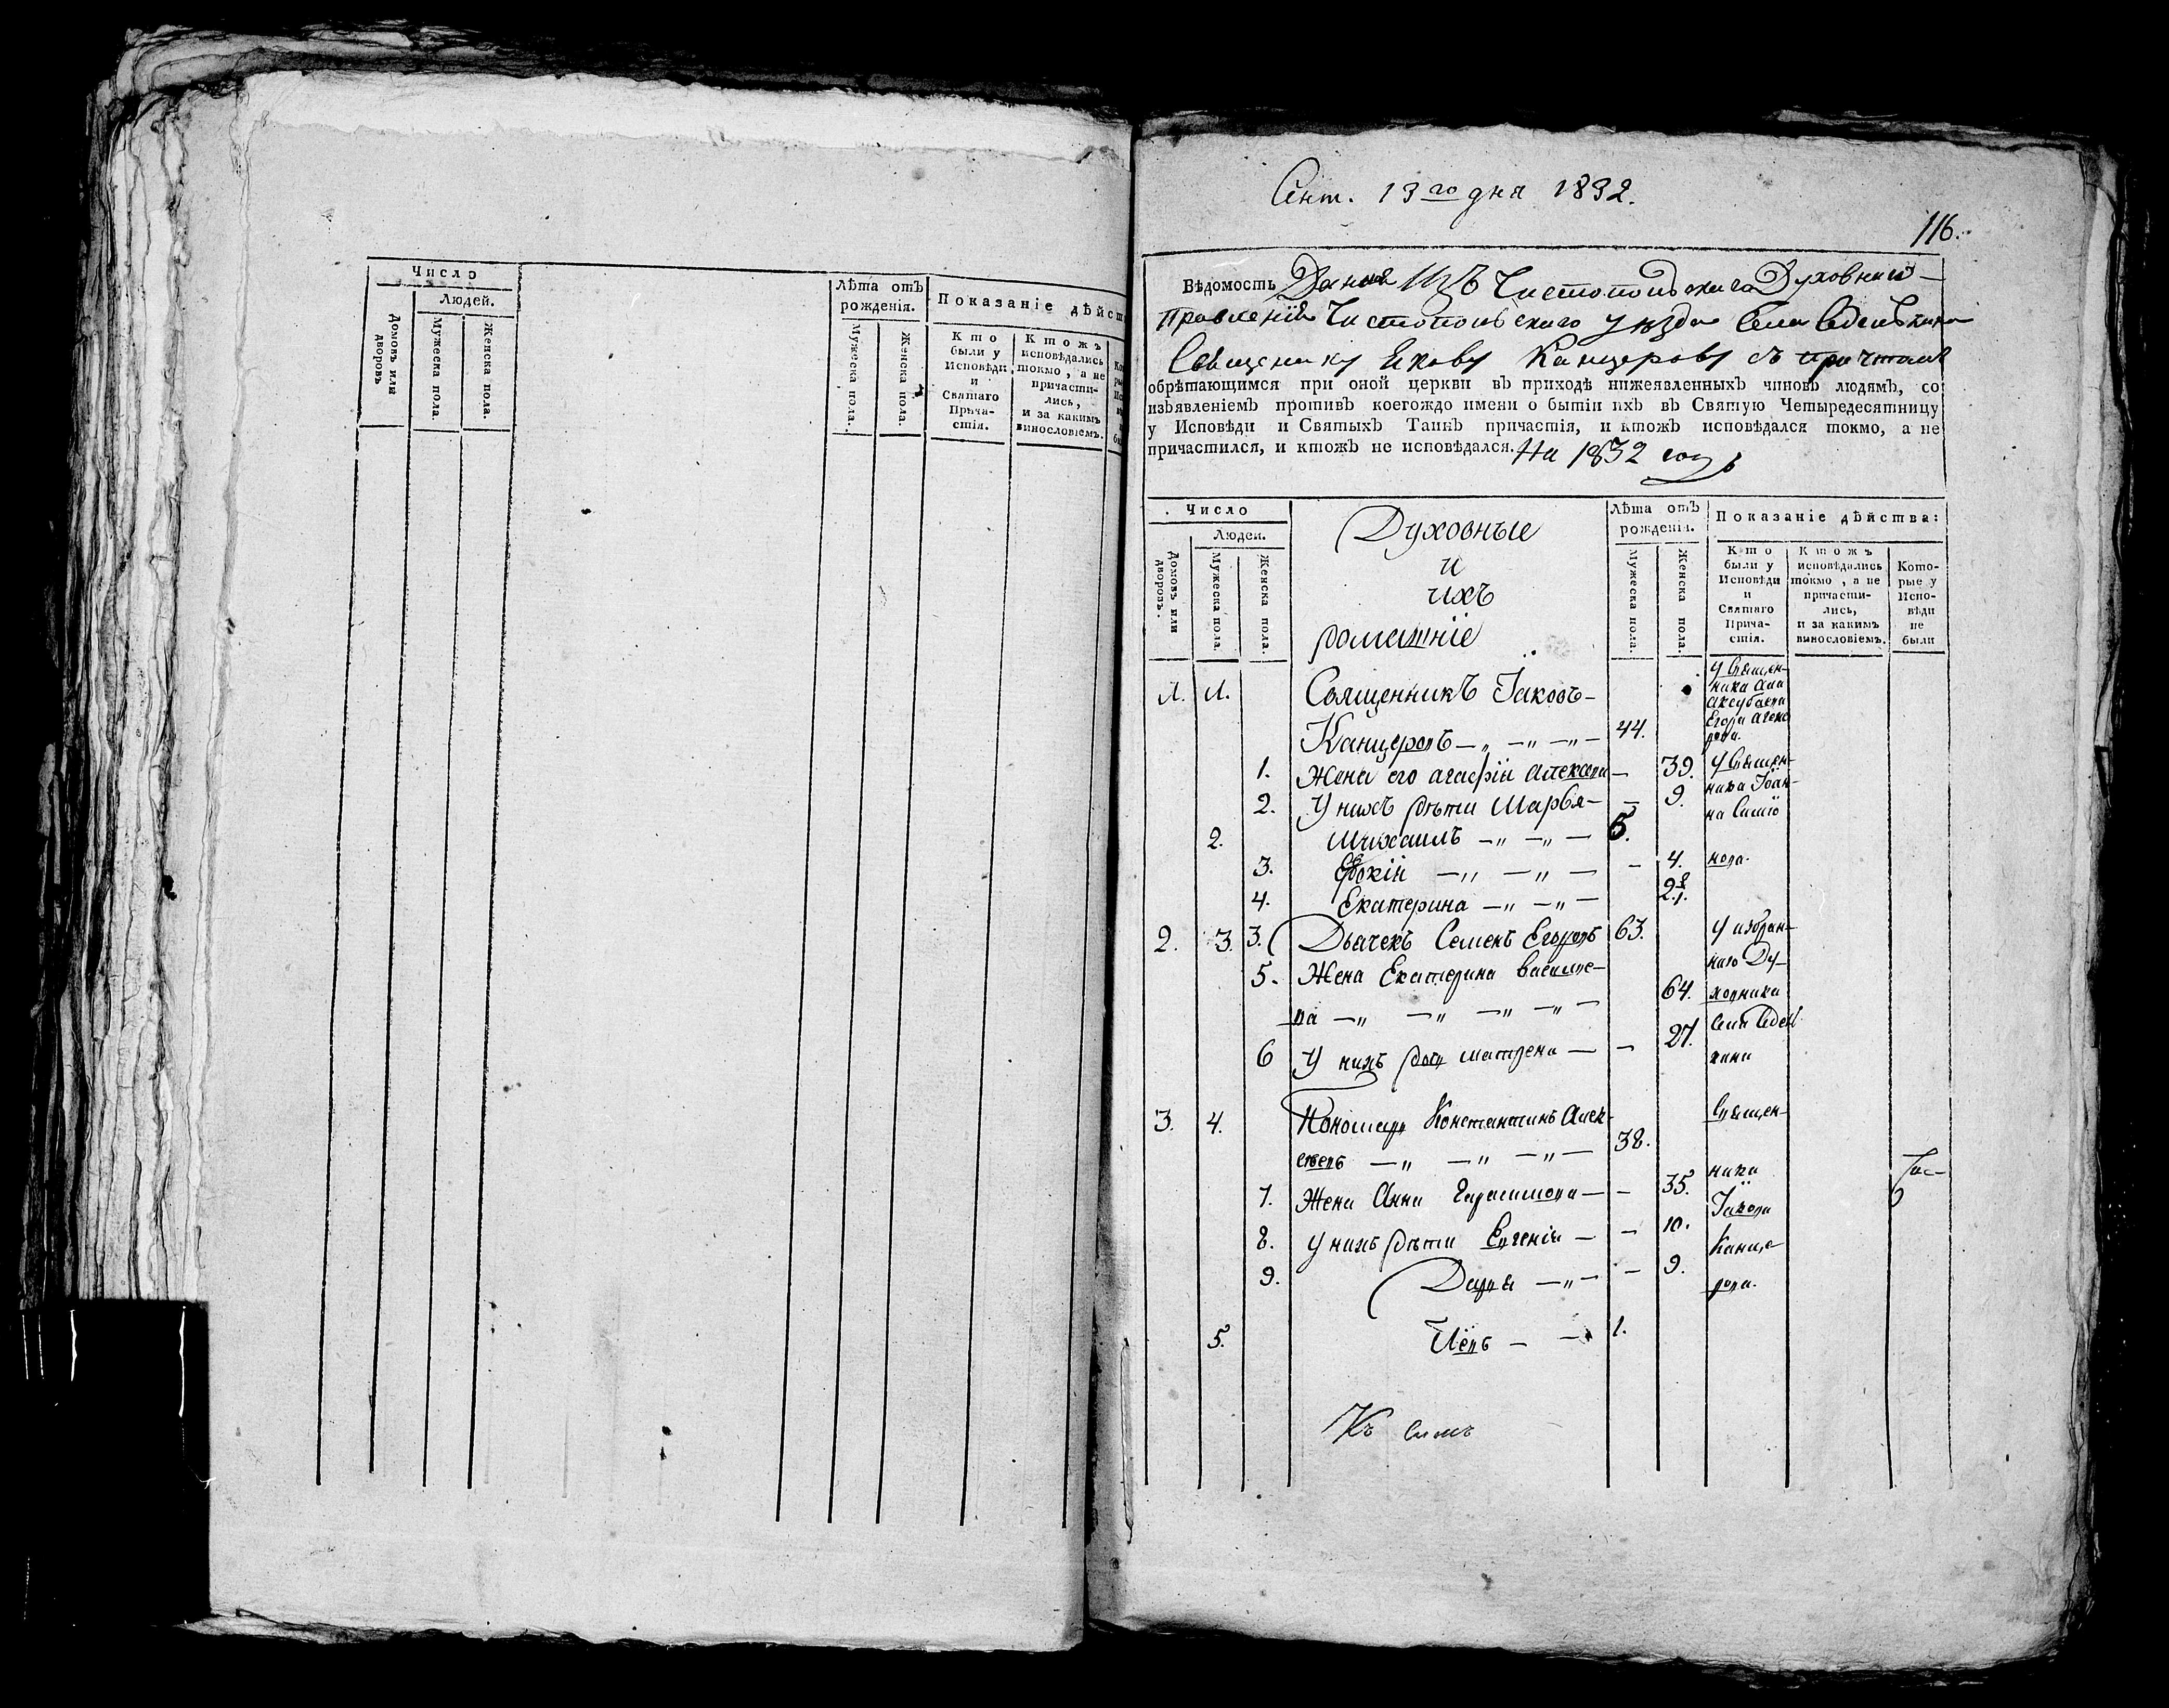 Число
Людей.
Домовъ или дворовъ
Мужеска пола.
Женска пола.
Лѣта отъ рожденія.
Мужеска пола.
Женска пола.
Показаніе дѣйст
Кто были у Исповѣди и Святаго Прича-стія.
Ктожъ исповѣдались токмо, а не причасти-лись, и за какимъ винословіемъ.
Сент. 13го дня 1832.
116.
Вѣдомость Данная Изъ Чистопольскаго Духовнаго
Правленія Чистопольскаго уѣзда Села
Священику Якову Канцерову съ причтомъ
обрѣтающимся при оной церкви въ приходѣ нижеявленныхъ чиновъ людямъ, со
изъявленіемъ противъ коегождо имени о бытіи ихъ въ Святую Четыредесятницу
у Исповѣди и Святыхъ Таинъ причастія, и ктожъ исповѣдался токмо, а не
причастился, и ктожъ не исповѣдался. На 1832 годъ
Число
Людей.
Домовъ или дворовъ.
Мужеска пола.
Женска пола.
Духовные
и
ихъ
домашніе
Лѣта отъ рожденія.
Мужеска пола.
Женска пола.
Показаніе дѣйства:
Кто были у Исповѣди и Святаго Прича-стія.
Ктожъ исповѣдались токмо, а не причасти-лись, и за какимъ винословіемъ.
Кото-рые у Испо-вѣди не были
1. 1. Священникъ Іаковъ – у Священ-
ника
Канцеровъ –„ –„ –„– 44. Егора
1. Жена его Агафія Алексѣева – 39. у Священ-
2. У нихъ дѣти Марѳа – – 9. ника Іоан-
на
2. Михаилъ –„ –„ – 5.
3. Евдокія –„ –„ – – 4.
4. Екатерина –„ –„ –
2. 3. 3. Дьячекъ Семенъ Егоровъ 63. у избран-
5. Жена Екатерина Василье- наго Ду-
ва –„ –„ –„ –„ – 64. ховника
6 У нихъ дочь Матрена – – 27. села
3. 4. Пономарь Константинъ Алек- Священ-
сѣевъ –„ –„ –„– 38.
ника
7. Жена Анна Гарасимова – – 35. Іакова
8. у нихъ дѣти Евгенія – – 10. Канце-
9. Дарья –„– – 9. рова.
5. Іевъ – – 1.
Къ симъ